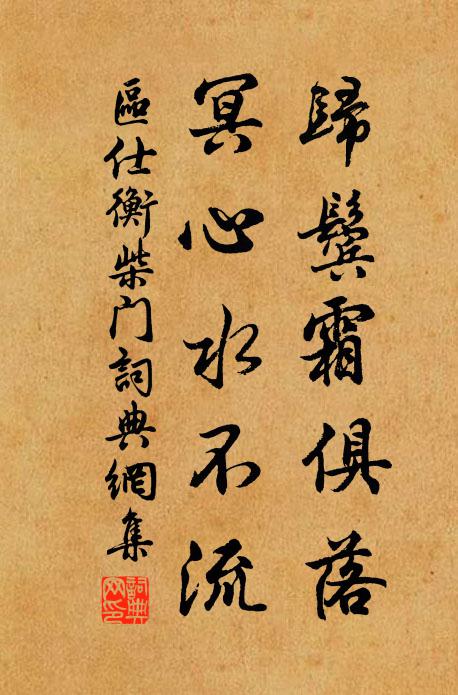 歸鬂霜俱落
冥心水不流
區仕衡柴門詞典網集
詞典网印